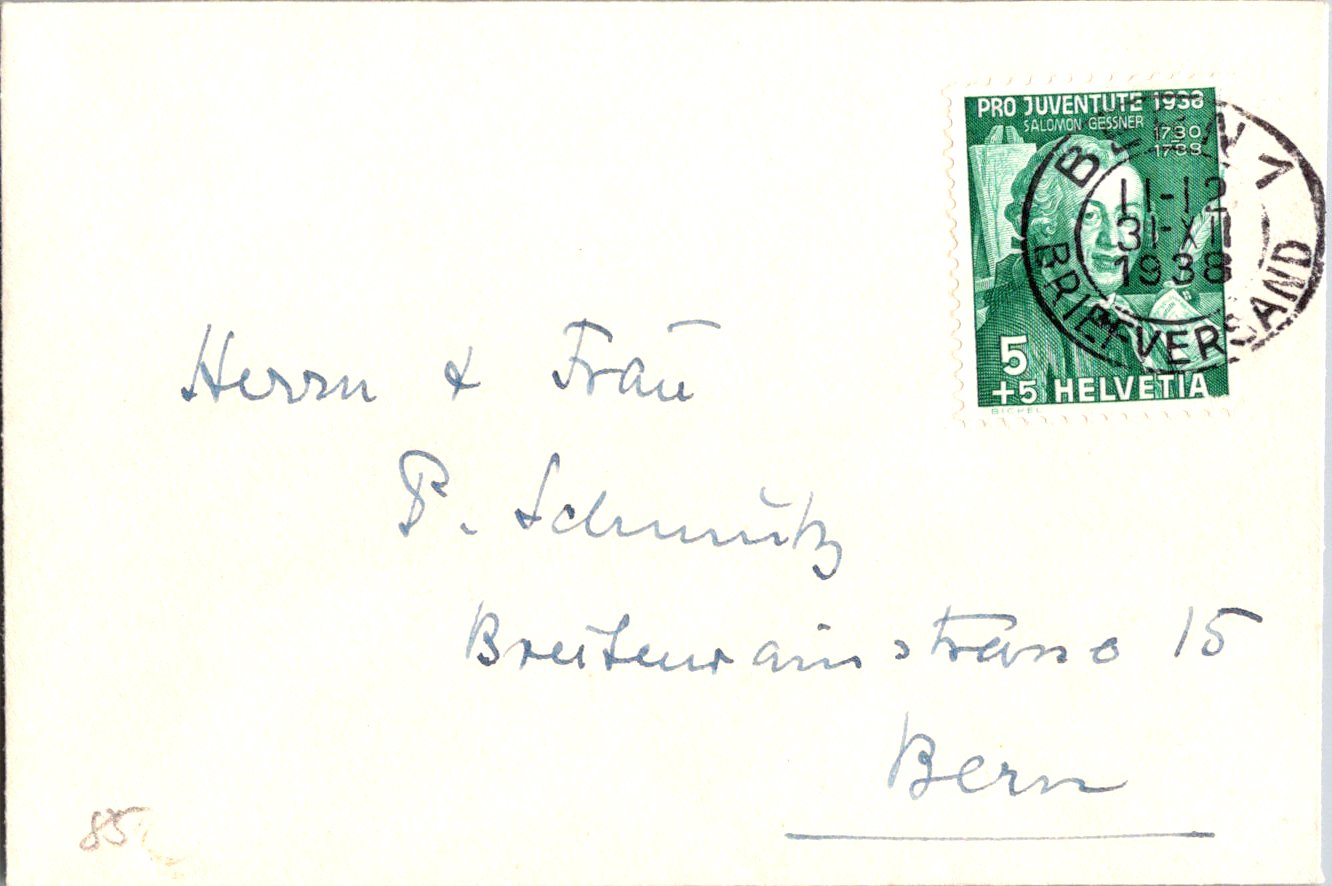 PRO JUVENTUTE 1938
SALOMON GESSNER
1730
1788
BERN 1
11-12
31-XII
1938
BRIEFVERSAND
5
+5 HELVETIA
BICKEL
Herrn & Frau
P. Schmütz
Breitenrainstrasse 15
Bern
85